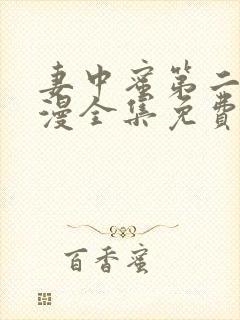 妻中蜜第二
漫全集免费
百香蜜